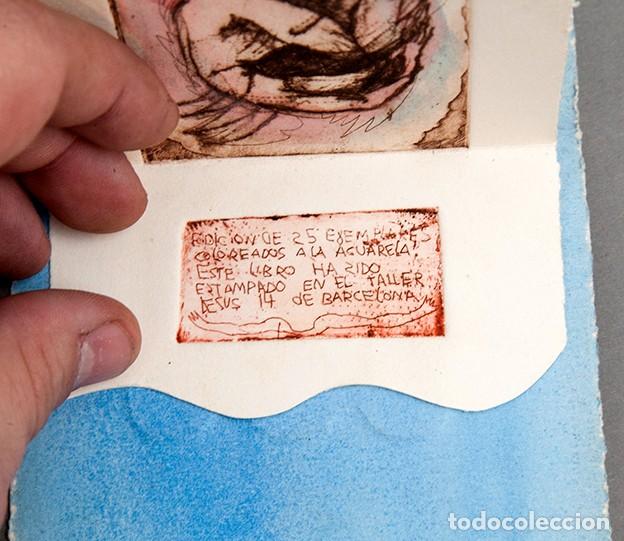 EDICION DE 25 EJEMPLARES
COLOREADOS A LA ACUARELA,
ESTE LIBRO HA SIDO
ESTAMPADO EN EL TALLER
JESUS 14 DE BARCELONA
todocoleccion